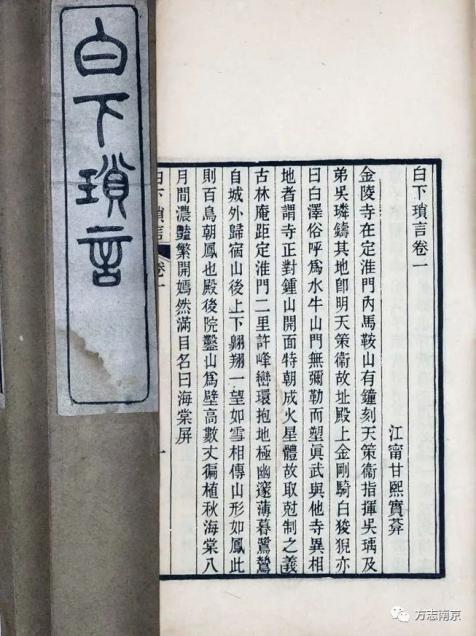 白下瑣言
白下瑣言卷一
江甯甘熙實葊
金陵寺在定淮門內馬鞍山有鐘刻天策衞指揮吳瑀及
弟吳璘鑄其地卽明天策衞故址殿上金剛騎白狻猊亦
曰白澤俗呼爲水牛山門無彌勒而塑眞武與他寺異相
地者謂寺正對鍾山開面特朝成火星體故取尅制之義
古林庵距定淮門二里許峰巒環抱地極幽邃薄暮鷺鷥
自城外歸宿山後上下翺翔一望如雪相傳山形如鳳此
則百鳥朝鳳也殿後院鑿山爲壁高數丈徧植秋海棠八
月間濃豔繁開嫣然滿目名曰海棠屏
白下瑣言 卷一 一
方志南京